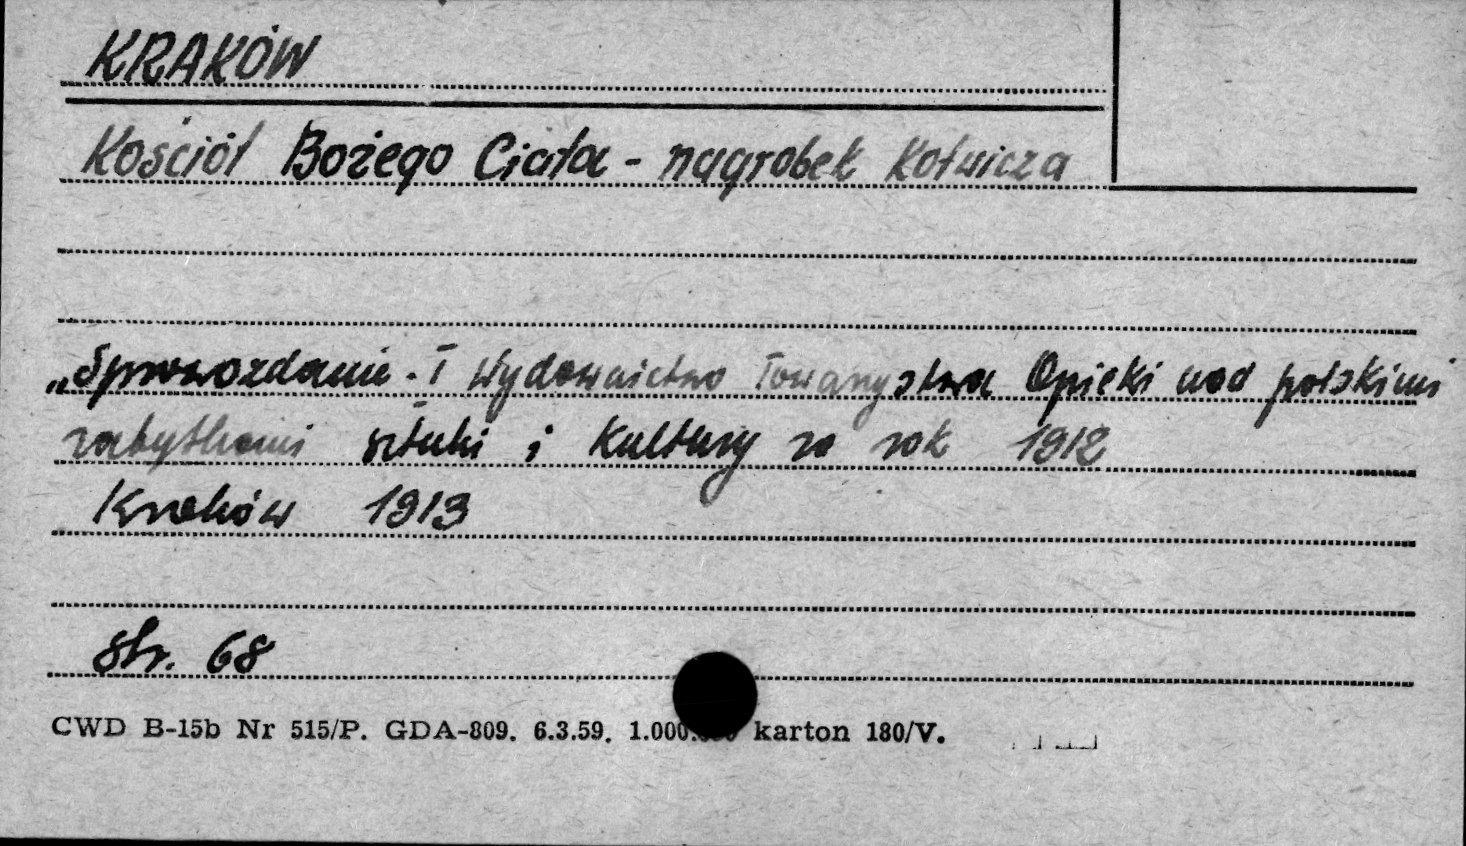 KRAKÓW
Kościół Bożego Ciała - nagrobek Kotwicza
„Sprawozdanie - I Wydawnictwo Towarzystwa Opieki nad polskimi
zabytkami sztuki i Kultury za rok 1912
Kraków 1913
str. 68
CWD B-15b Nr 515/P. GDA-809. 6.3.59. 1.000.000 karton 180/V.